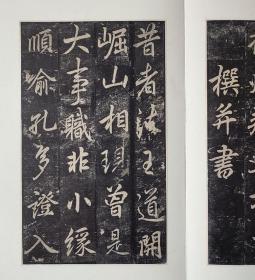 撰并書
昔者法王道開
崛山相現曾是
大事職非小緣
順喻孔多證入